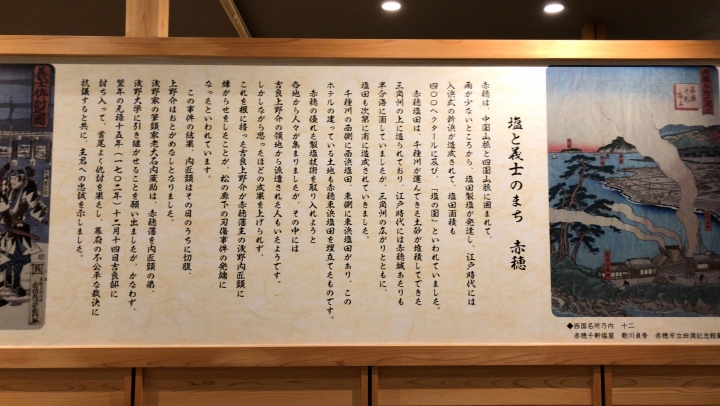 塩と義士のまち 赤穂
赤穂は、中国山脈と四国山脈に囲まれて、
雨が少ないところから、塩田製塩が発達し、江戸時代には
入浜式の新浜が造成されて、塩田面積も
四〇〇ヘクタールに及び、「塩の国」といわれていました。
赤穂塩田は、千種川が運んできた土砂が堆積してできた
三角州の上に造られており、江戸時代には赤穂城あたりも
半分海に面していましたが、三角州の広がりとともに、
塩田も次第に南に造成されていきました。
千種川の西側に西浜塩田、東側に東浜塩田があり、この
ホテルの建っている土地も赤穂東浜塩田を埋立てたものです。
赤穂の優れた製塩技術を取り入れようと
各地から人々が集まりましたが、その中には
吉良上野介の領地から派遣された人もいたようです。
しかしながら思ったほどの成果を上げられず、
これを根に持った吉良上野介が赤穂藩主の浅野内匠頭に
嫌がらせをしたことが、松の廊下の刃傷事件の発端に
なったといわれています。
この事件の結果、内匠頭はその日のうちに切腹、
上野介はおとがめなしとなりました。
浅野家の筆頭家老大石内蔵助は、赤穂藩を内匠頭の弟、
浅野大学に引き継がせることを願い出ましたが、かなわず、
翌年の元禄十五年(一七〇二年)十二月十四日吉良邸に
討ち入って、首尾よく仇討を果たし、幕府の不公平な裁決に
抗議すると共に、主君への忠誠を示しました。
◆西国名所乃内 十二
赤穂千軒塩屋 歌川貞秀 赤穂市立田淵記念館蔵